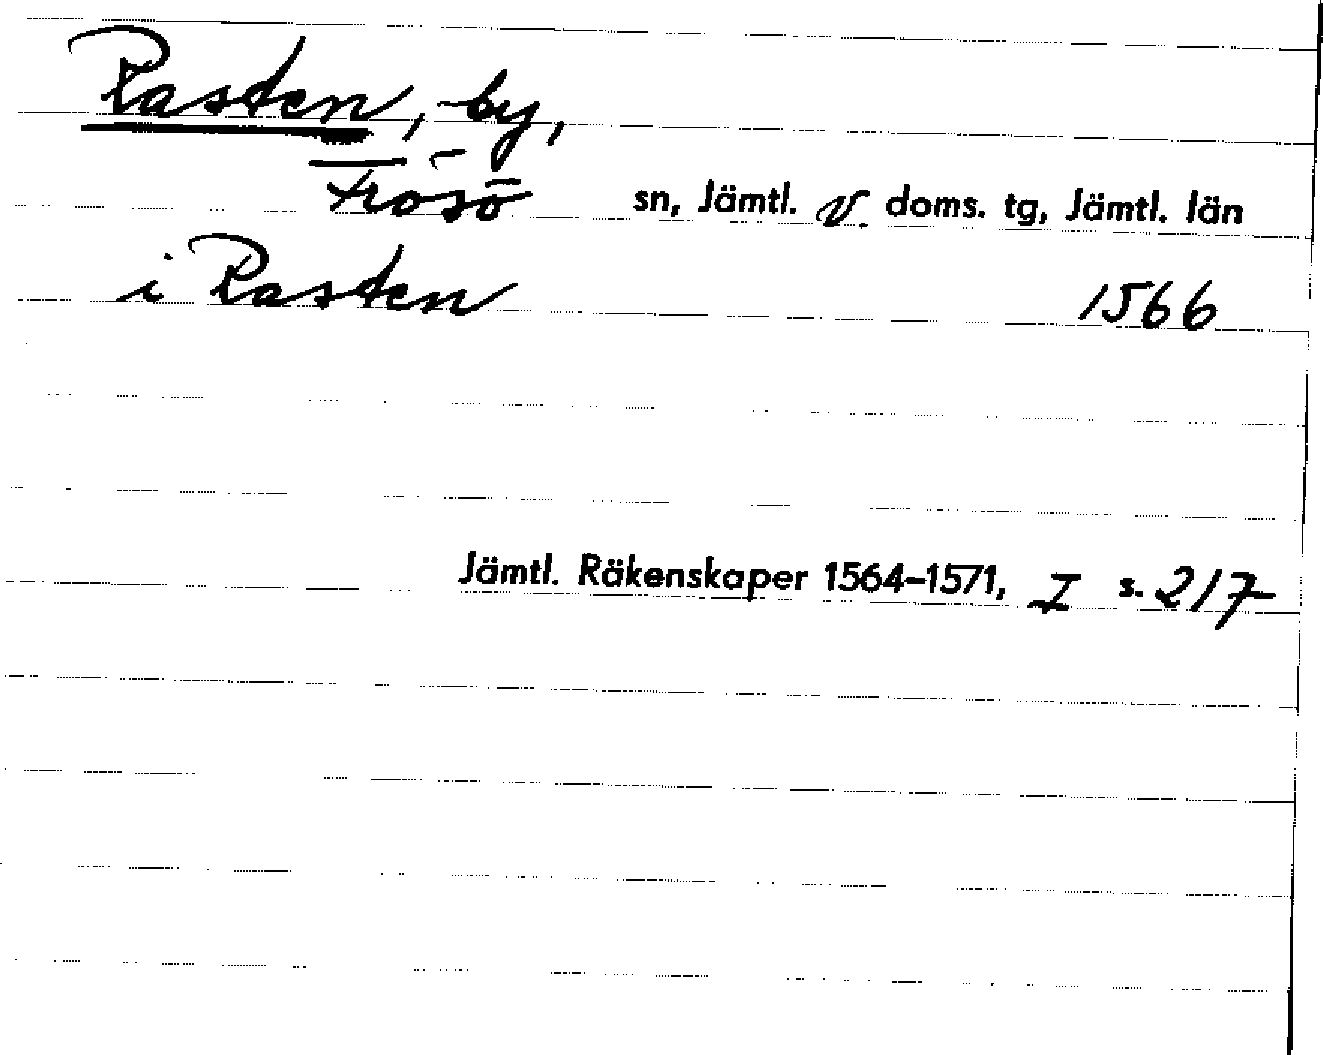 Rasten, by,
Frösö sn, Jämtl. v. doms. tg, Jämtl. län
i Rasten 1566
Jämtl. Räkenskaper 1564-1571, I s. 217